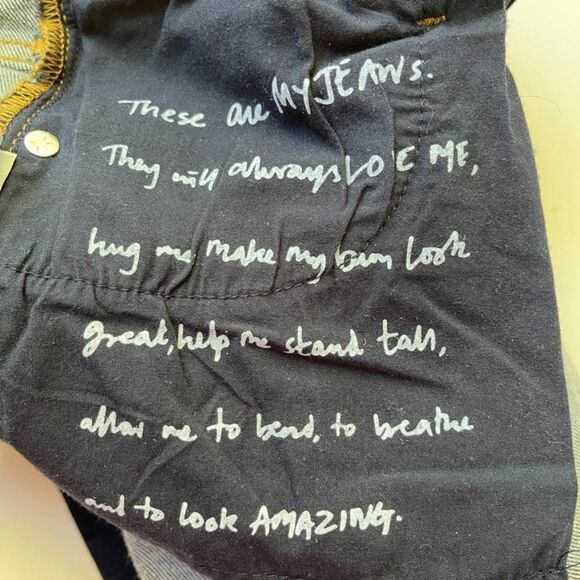 These are MY JEANS.
They will always LOVE ME,
hug me make my bum look
great, help me stand tall,
allow me to bend, to breathe
and to look AMAZING.